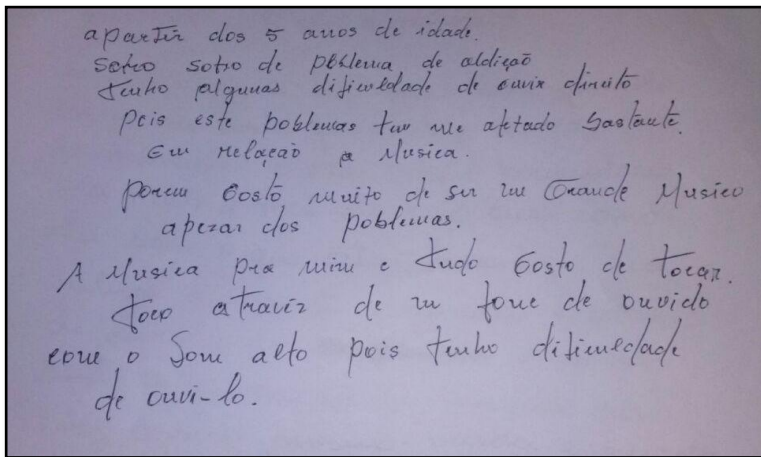 apartir dos 5 anos de idade.
sofro sofro de poblema de aldição
tenho algumas dificuldade de ouvir direito
pois este poblemas tem me afetado bastante.
Em relação a Musica.
porem Gosto muito de ser um Grande Musico
apezar dos poblemas.
A Musica pra mim e tudo Gosto de tocar.
toco atraviz de um fone de ouvido
com o Som alto pois tenho dificuldade
de ouvi-lo.